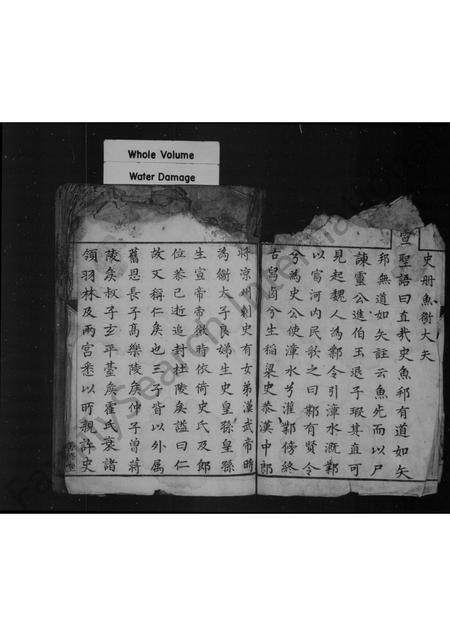 Whole Volume
Water Damage
史册魚衛大夫
宣聖語曰直哉史魚邦有道如矢
邦無道如矢註云魚死而以尸
諫靈公進伯玉退子瑕其直可
見起魏人為鄴令引漳水溉鄴
以富河内民歌之曰鄴有賢令
兮為史公使漳水兮灌鄴傍終
古舄鹵兮生稻梁史恭漢中郎
將涼州刺史有女弟漢武帝時
為衛太子良娣生史皇孫皇孫
生宣帝帝微時依倚史氏及即
位恭已逝追封杜陵矦謚曰仁
故又稱仁矣也三子皆以外属
舊恩長子高樂陵矦仲子曾蔣
陵矦叔子玄平臺矦霍氏衰諸
領羽林及兩宮悉以所親許史
FamilySearch International